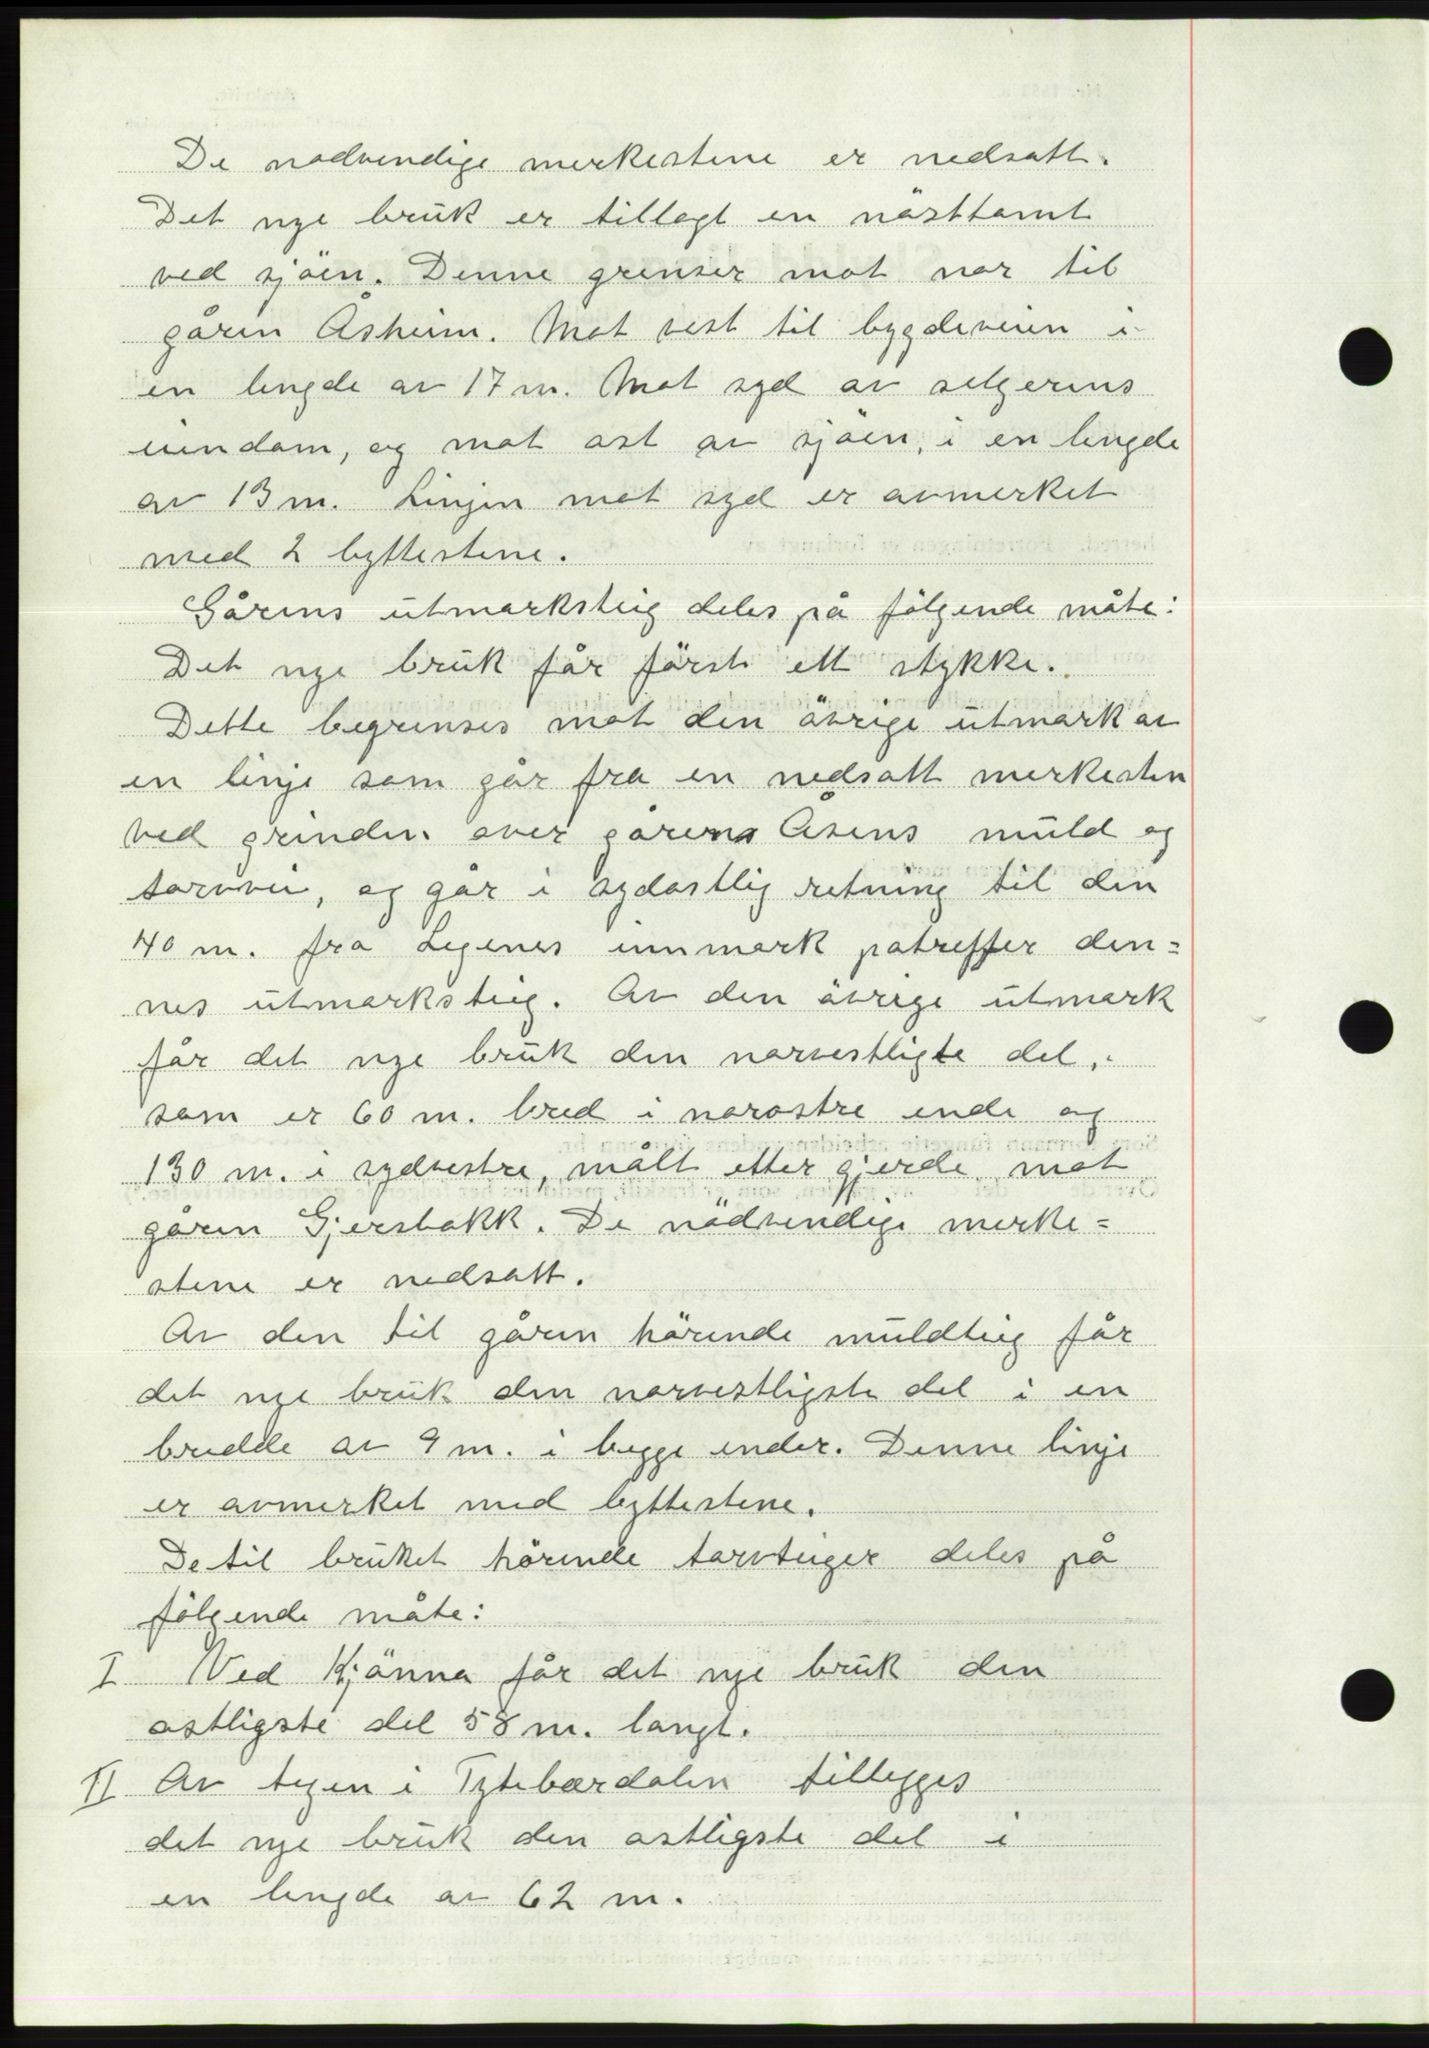 De nodvendige merkestene er nedsatt.
Det nye bruk er tillagt en nösttomt
ved sjöen. Denne grenser mot nor til
gåren Åsheim. Mot vest til bygdeveien i
en lengde av 17 m. Mot syd av selgerens
eiendom, og mot ost av sjöen, i en lengde
av 13 m. Linjen mot syd er avmerket
med 2 byttestene.
Gårens utmarksteig deles på fölgende måte:
Det nye bruk får först ett stykke.
Dette begrenses mot den övrige utmark av
en linje som går fra en nedsatt merkesten
ved grinden over gårens Åsens muld og
torvvei, og går i sydostlig retning til den
40 m. fra Legenes innmark påtreffer den=
nes utmarksteig. Av den övrige utmark
får det nye bruk den norvestligte del,
som er 60 m. bred i norostre ende og
130 m. i sydvestre, målt etter gjerde mot
gåren Gjersbakk. De nödvendige merke=
stene er nedsatt.
Av den til gåren hörende muldteig får
det nye bruk den norvestligste del i en
bredde av 9 m. i begge ender. Denne linje
er avmerket med byttestene.
De til bruket hörende torvteiger deles på
fölgende måte:
I Ved Kjönna får det nye bruk den
ostligste del 58 m. langt.
II Av teigen i Tytebærdalen tillegges
det nye bruk den ostligste del i
en lengde av 62 m.